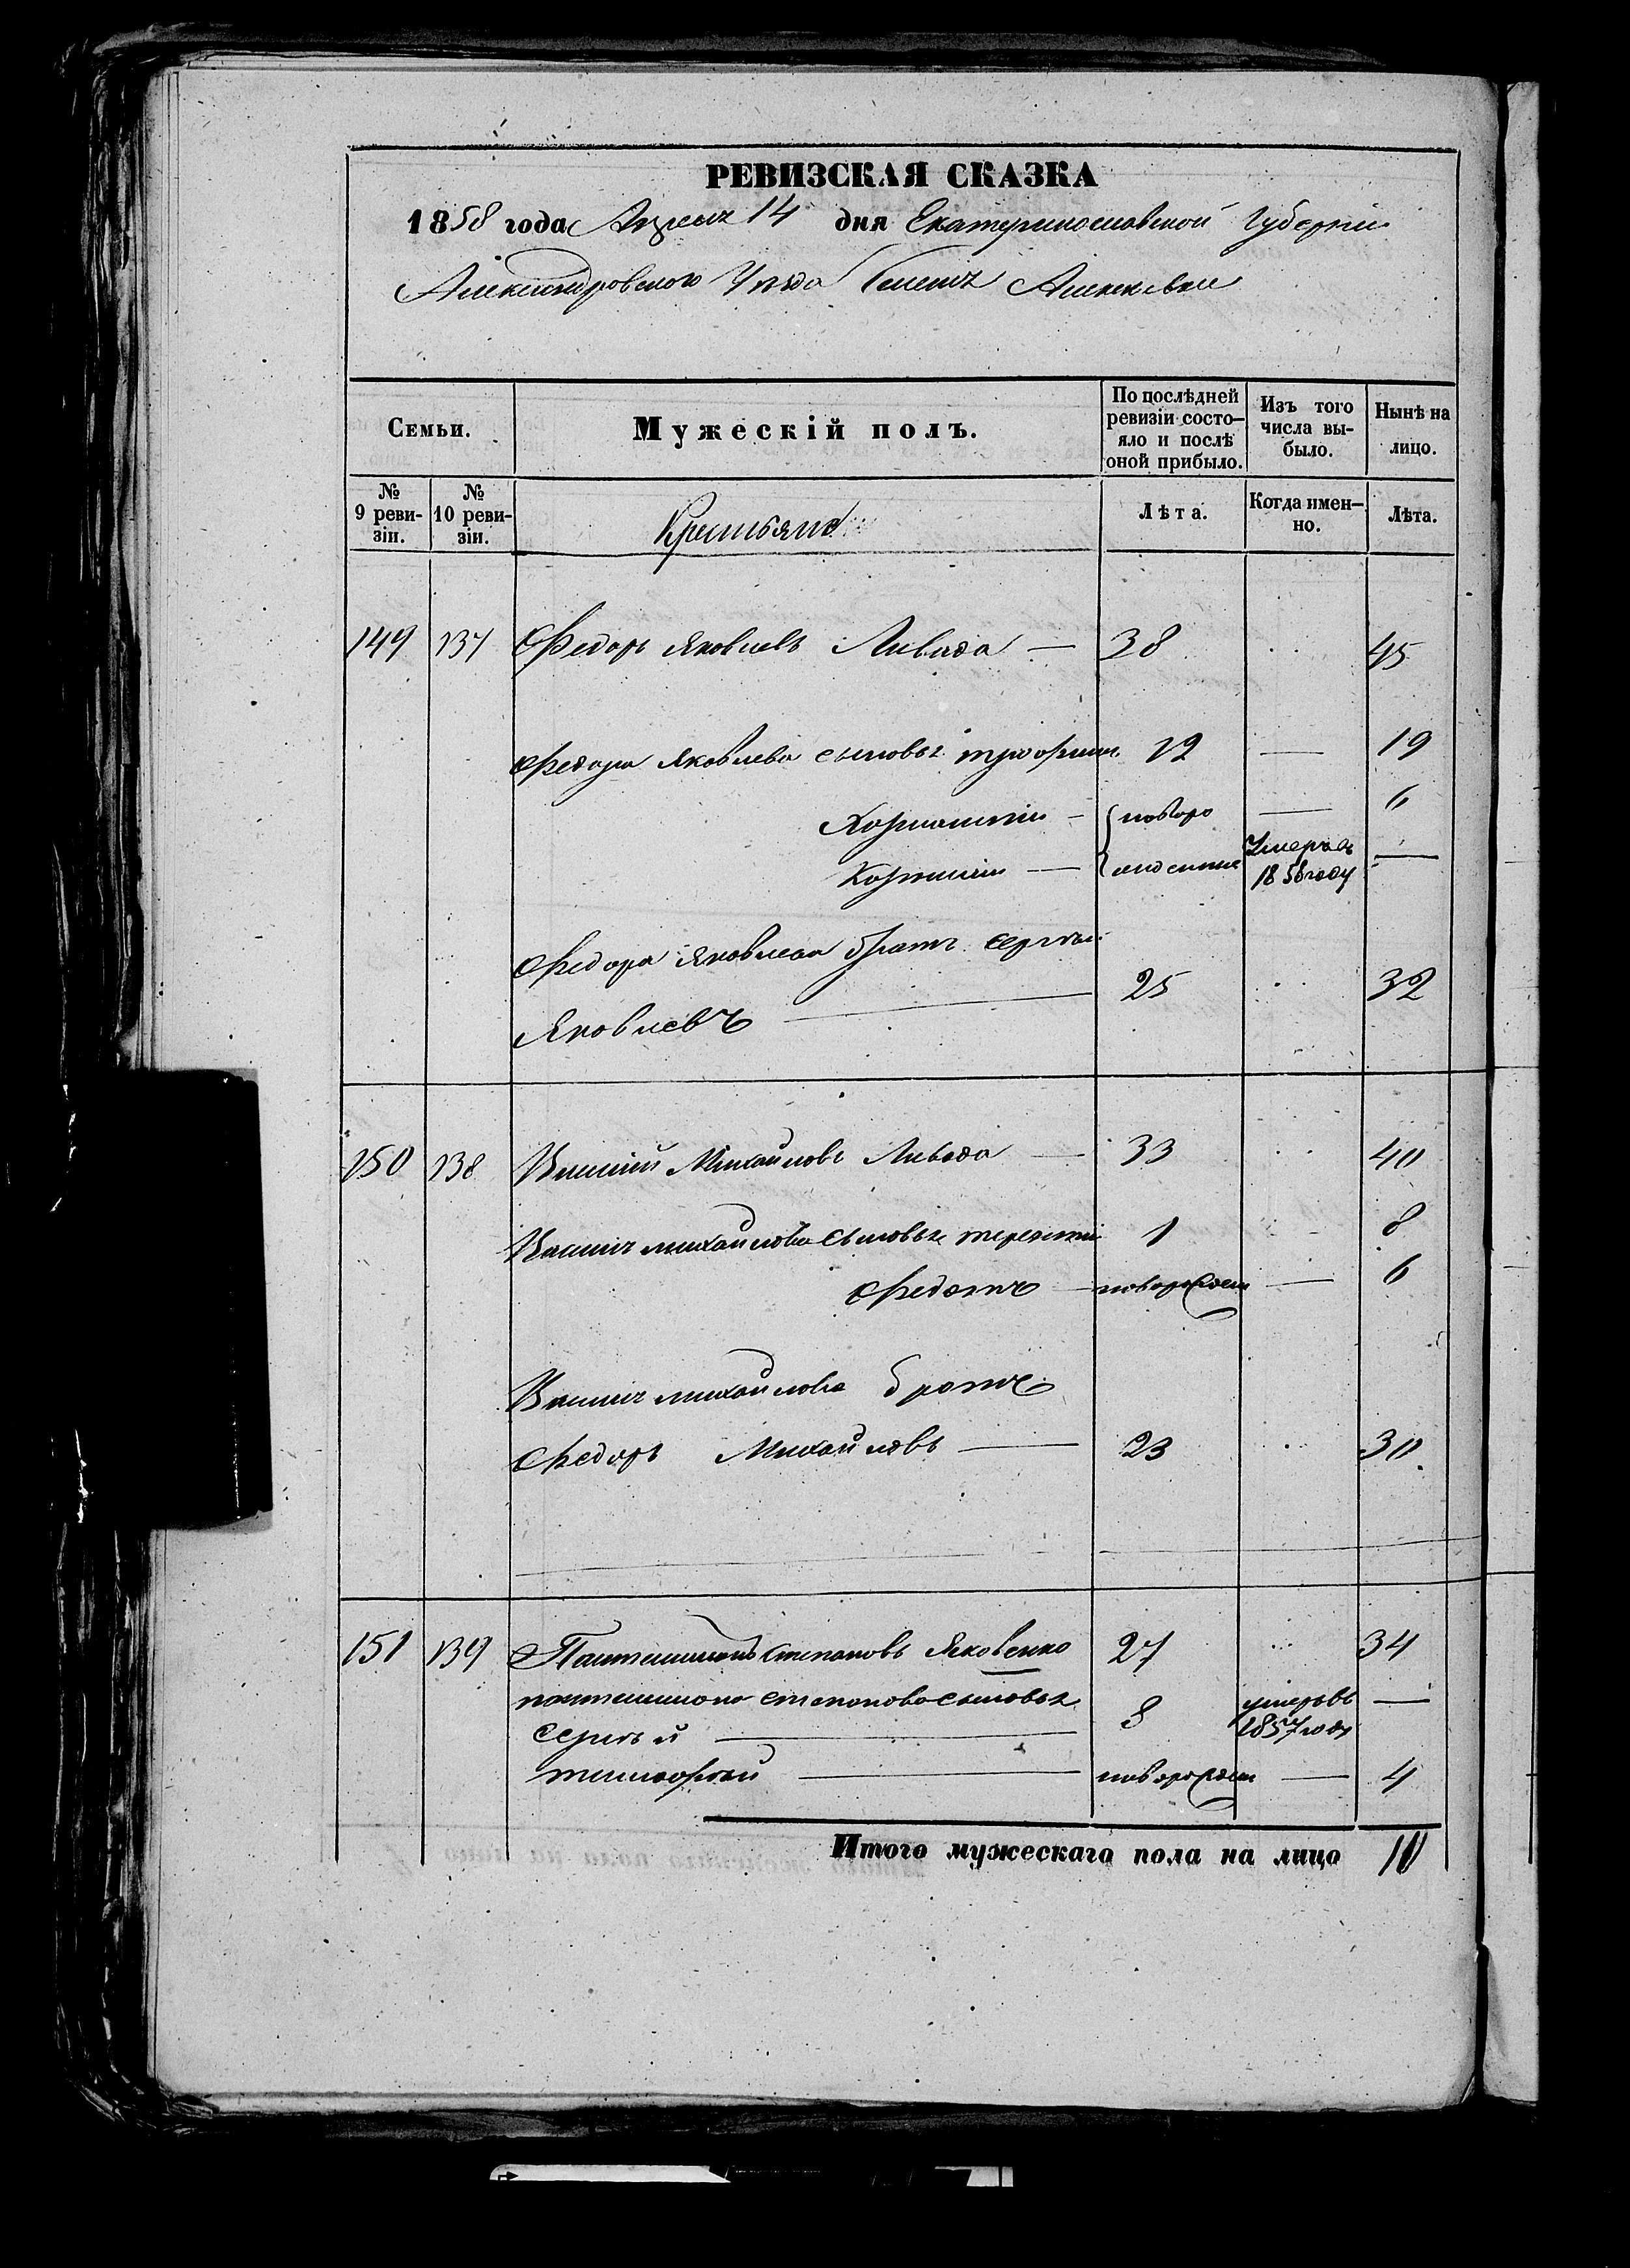 РЕВИЗСКАЯ СКАЗКА
1858 года Апреля 14 дня Екатеринославской Губерніи
Александровского Уезда Алексеевки
Семьи. Мужескій полъ. По послѣдней ревизіи состо-яло и послѣ оной прибыло. Изъ того числа вы-было. Нынѣ на лицо.
№ 9 реви-зіи. № 10 реви-зіи. Крестьяне Лѣта. Когда имен-но. Лѣта.
149 137 Федоръ Яковлевъ Ливада — 38 45
Федора Яковлева сыновья Трофимъ 12 — 19
Харлампій — новоро — 6
Корнилій — жденные Умеръ въ 1856 году —
Федора Яковлева братъ Сергѣй
Яковлевъ — 25 32
150 138 Василій Михайловъ Ливада — 33 40
Василія Михайлова сыновья Терентій 1 8
Федотъ — новорожден — 6
Василія Михайлова братъ
Федоръ Михайловъ — 23 30
151 139 Пантелимонъ Степановъ Яковенко 27 34
Пантелимона Степанова сыновья
Сергѣй — 8 умеръ въ 1857 году —
Тимофѣй — новорожден — 4
Итого мужескаго пола на лицо 10